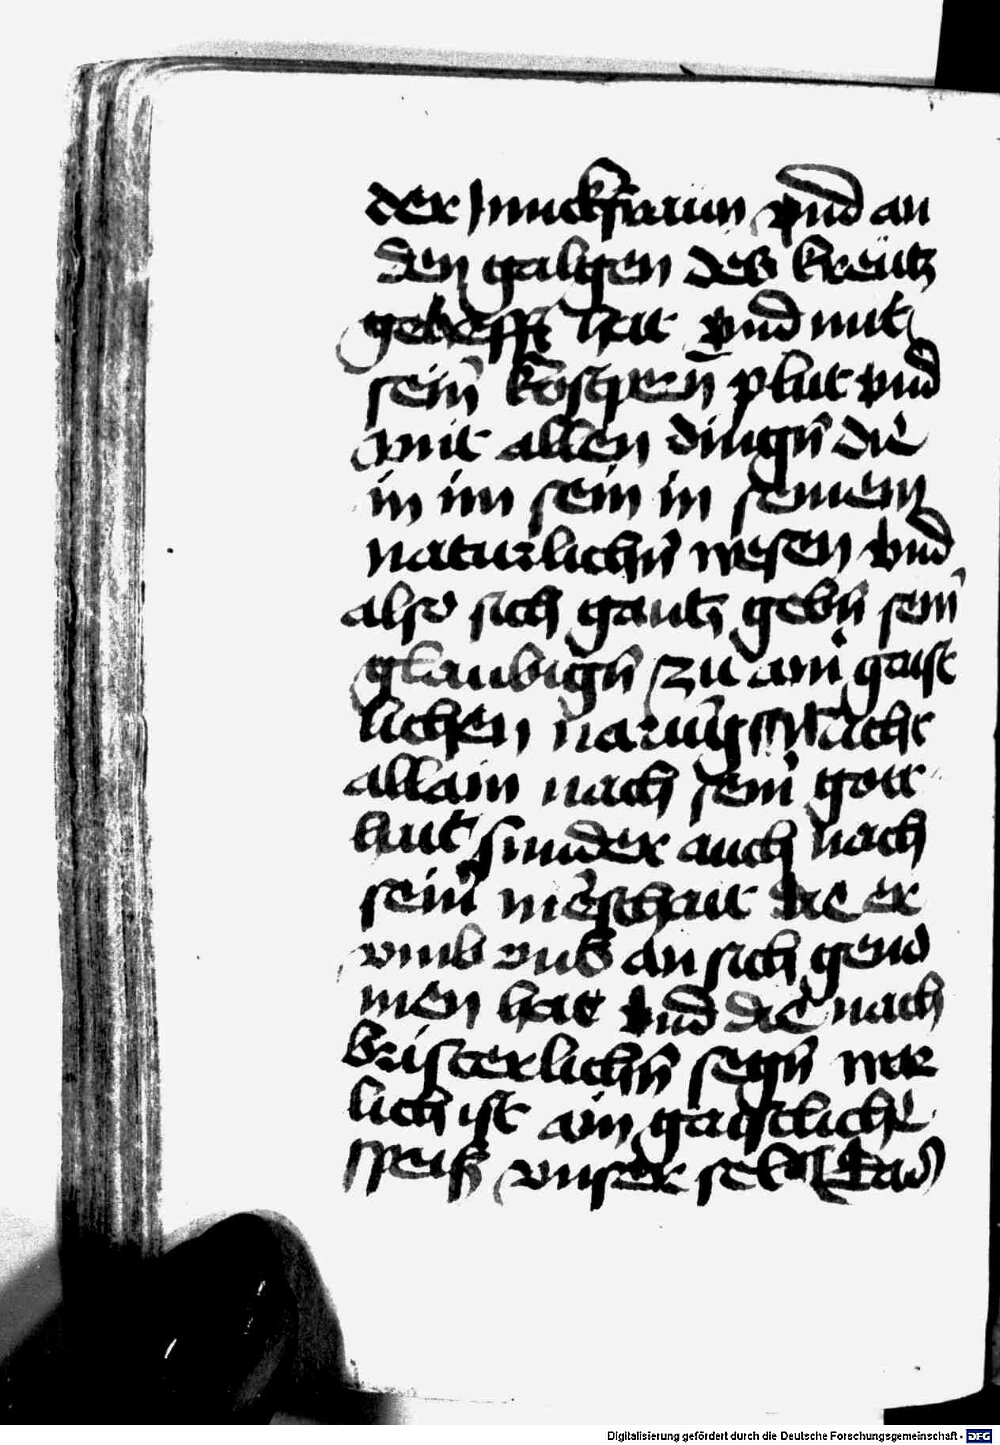 der Junckfrawn vnd an
den galgen des kreutz
gehefft hat vnd mit
sein̄ kostpern̄ plut vnd
mit allen dingn̄ die
in im sein in seinem
naturlichn̄ wesen vnd
also sich gantz gebn̄ sein̄
glaubign̄ zu ain̄ gaist
lichen narūg nicht
allain nach sein̄ gott
hait sunder auch nach
sein̄ mēschait die er
vmb vns an sich geno
men hat vnd die nach
bristerlichn̄ segn̄ wer
lich ist ain gaistliche
speiß vnser sel Das
Digitalisierung gefördert durch die Deutsche Forschungsgemeinschaft - DFG